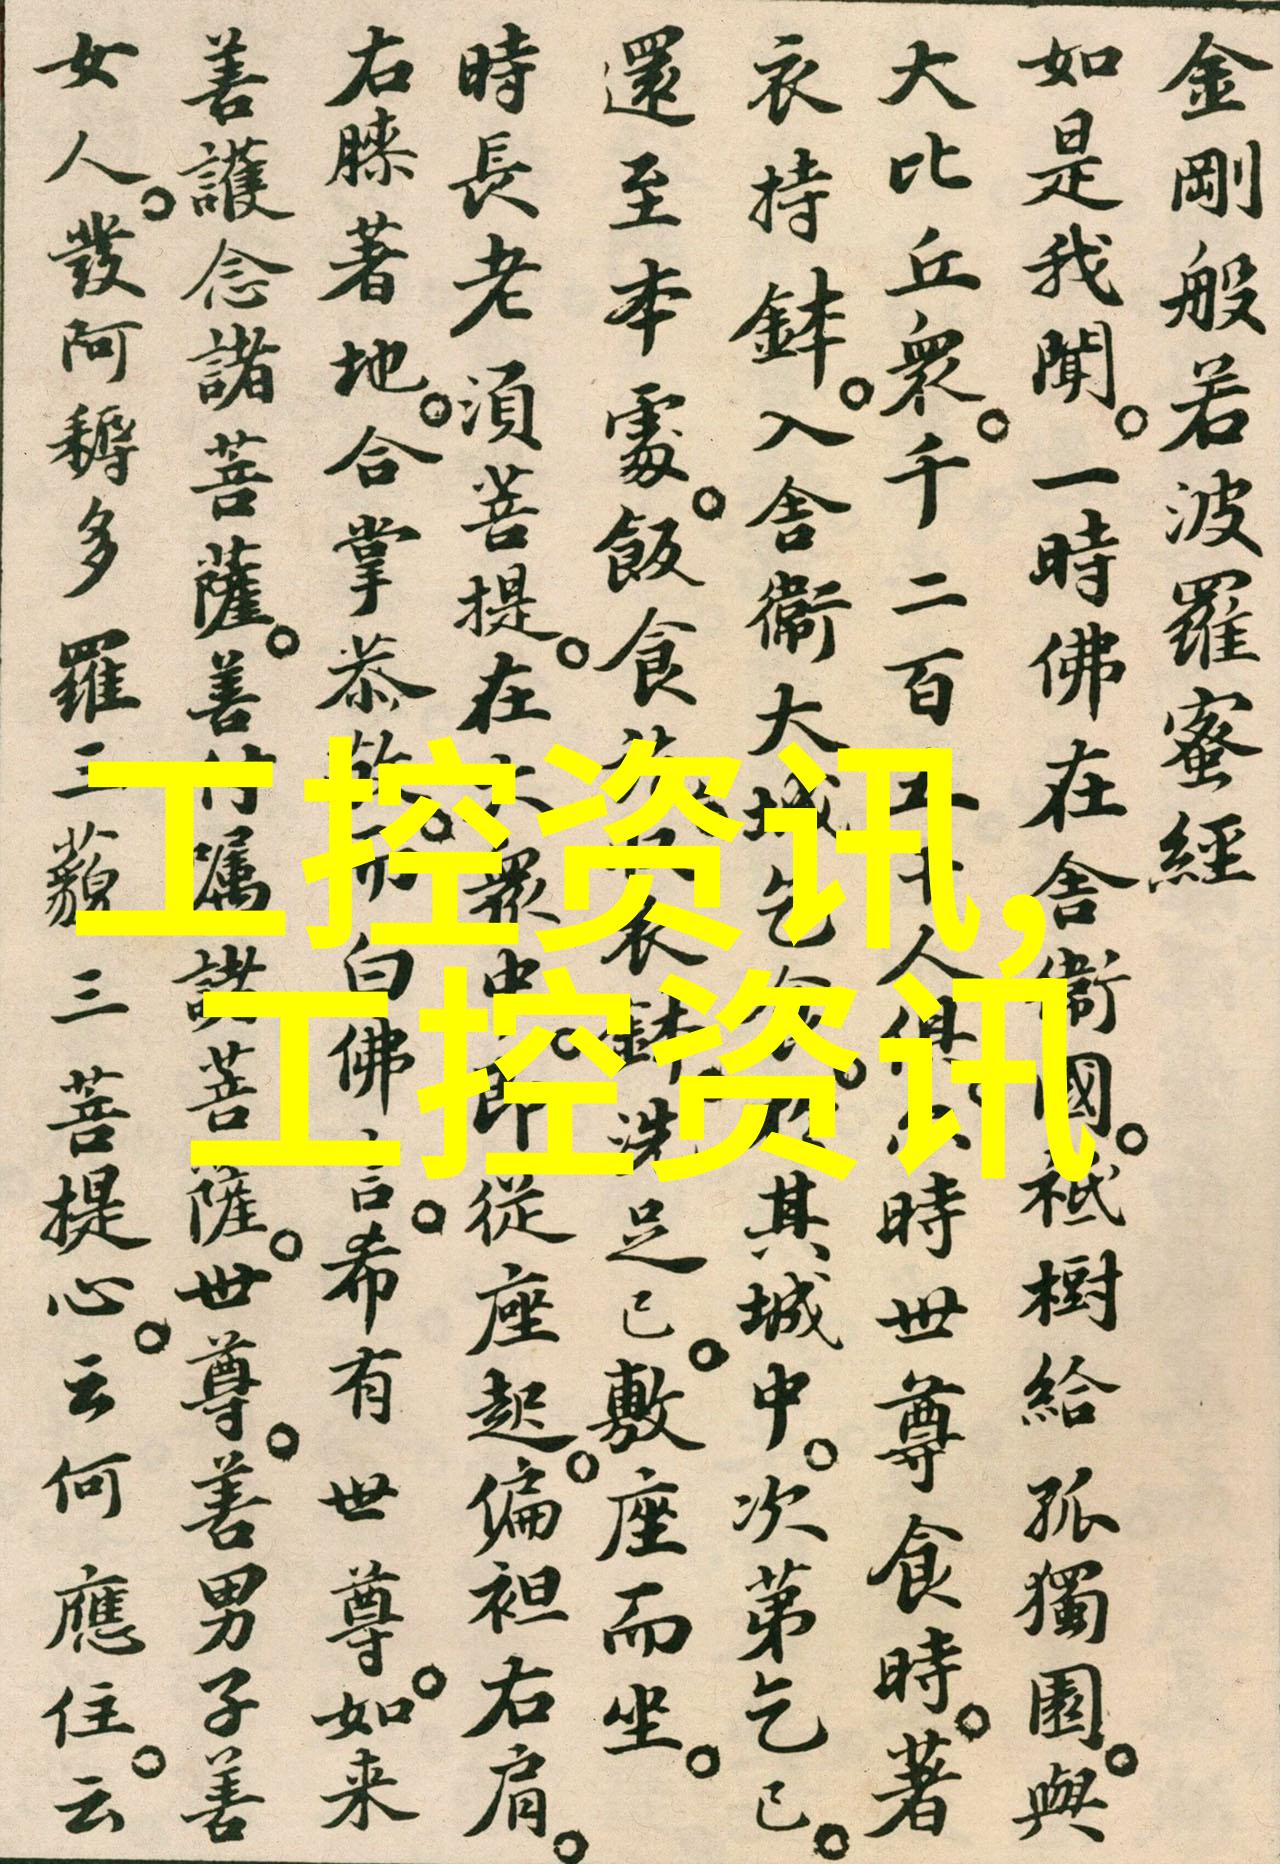 金剛般若波羅蜜經
如是我聞。一時佛在舍衞國。祇樹給孤獨園。與
大比丘衆。千二百五十人俱。尒時世尊食時。著
衣持鉢。入舍衞大城乞食。於其城中。次第乞已。
還至本處。飯食訖。收衣鉢。洗足已。敷座而坐。
時長老湏菩提。在大衆中。即從座起。偏袒右肩。
右膝著地。合掌恭敬。而白佛言。希有世尊。如来
善護念諸菩薩。善付嘱諸菩薩。世尊。善男子善
女人。發阿耨多羅三藐三菩提心。云何應住。云
工控资讯,
工控资讯